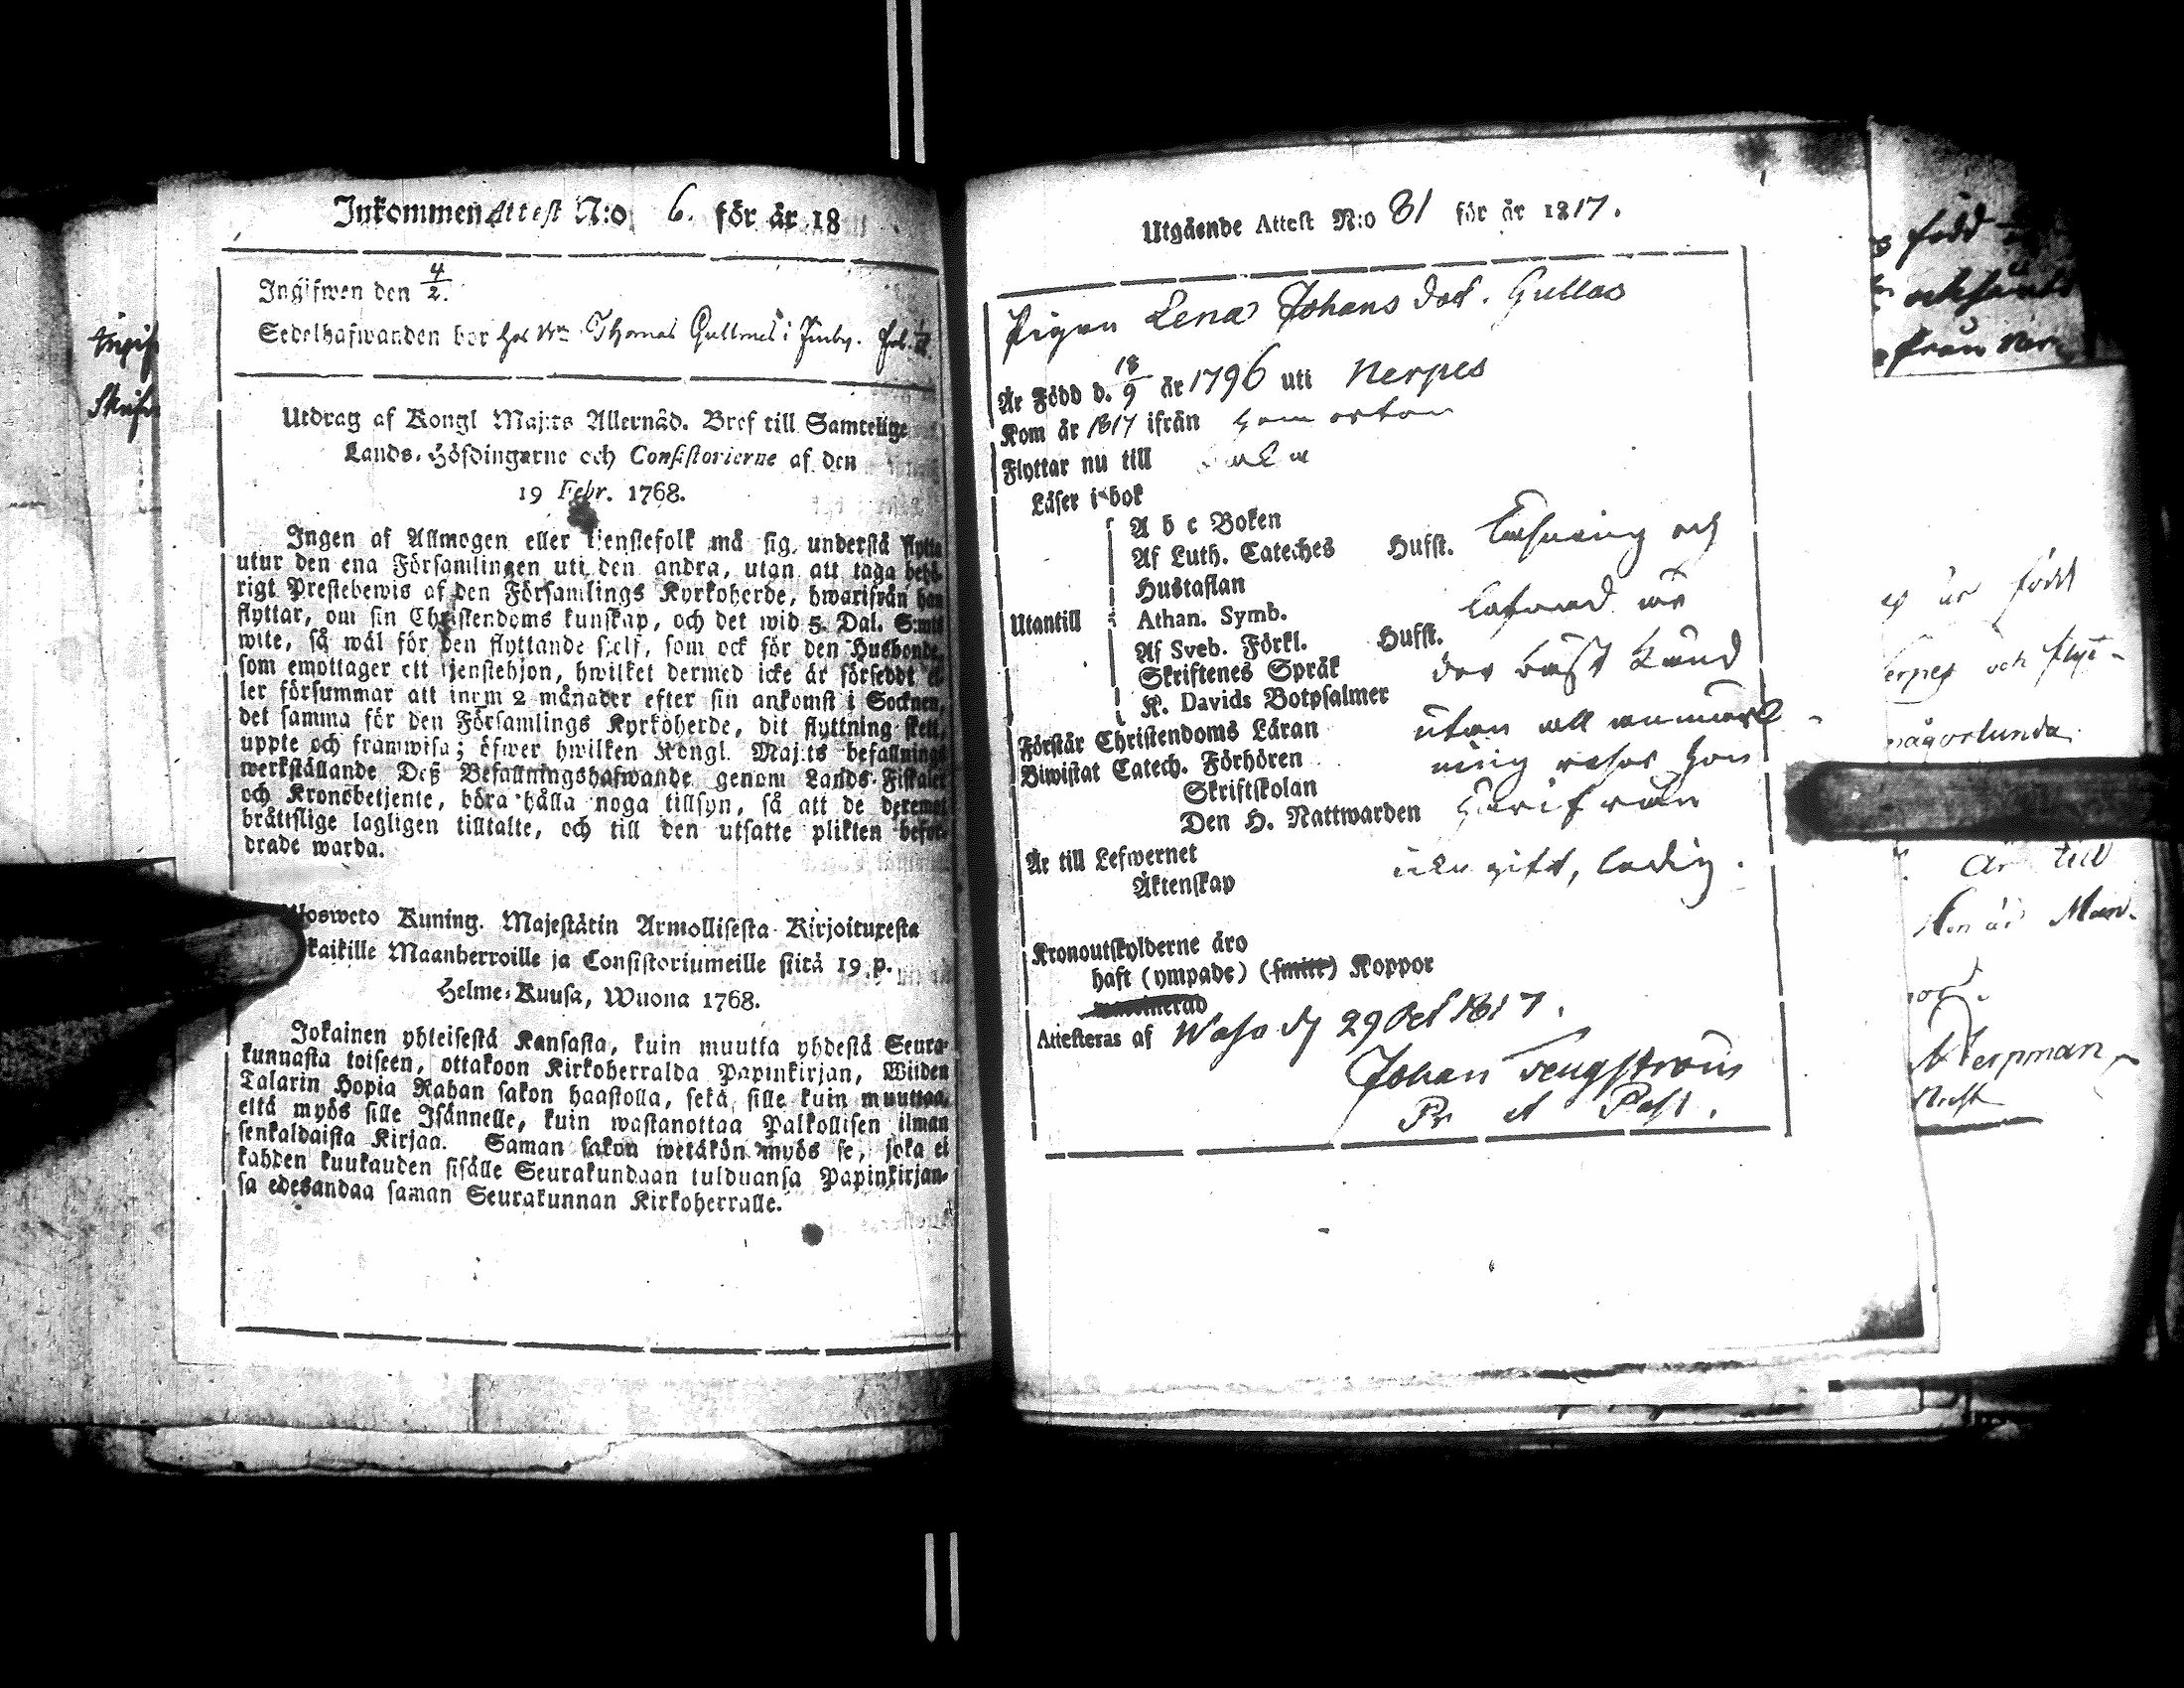 Inkommen Attest N:o 6. för år 18
Ingifwen den 4/2.
Sedelhafwanden bor hos Thomas Gullmes i Finby. fol.
Utdrag af Kongl Maj:ts Allernåd. Bref till Samtelige
Lands-Höfdingarne och Consistorierne af den
19 Febr. 1768.
Ingen af Allmogen eller tjenstefolk må sig understå flytta
utur den ena Församlingen uti den andra, utan att taga behö-
rigt Prestebewis af den Församlings Kyrkoherde, hwarifrån han
flyttar, om sin Christendoms kunskap, och det wid 5. Dal. S:mts
wite, så wäl för den flyttande sjelf, som ock för den Husbonde,
som emottager ett tjenstehjon, hwilket dermed icke är försedt el-
ler försummar att inom 2 månader efter sin ankomst i Socknen,
det samma för den Församlings Kyrkoherde, dit flyttning skett,
uppte och framwisa; öfwer hwilken Kongl. Maj:ts befallnings
werkställande Deß Befallningshafwande genom Lands-Fiskaler
och Kronobetjente, böra hålla noga tillsyn, så att de deremot
bråttslige lagligen tilltalte, och till den utsatte plikten befor-
drade warda.
Ulosweto Kuning. Majestätin Armollisesta Kirjoituxesta
kaikille Maanherroille ja Consistoriumeille siitä 19 p.
Helme-Kuusa, Wuona 1768.
Jokainen yhteisestä Kansasta, kuin muutta yhdestä Seura-
kunnasta toiseen, ottakoon Kirkoherralda Papinkirjan, Wiiden
Talarin Hopia Rahan sakon haastolla, sekä sille kuin muuttaa,
että myös sille Isännelle, kuin wastanottaa Palkollisen ilman
senkaldaista Kirjaa. Saman sakon wetäkön myös se, joka ei
kahden kuukauden sisälle Seurakundaan tulduansa Papinkirjan-
sa edesandaa saman Seurakunnan Kirkoherralle.
Utgående Attest N:o 81 för år 1817.
Pigan Lena Johans dot. Gullas
Är Född d. 18/9 år 1796 uti Nerpes
Kom år 1817 ifrån hem orten
Flyttar nu till
Läser i bok
A b c Boken
Af Luth. Cateches Husst. Läsning och
Hustaflan
Utantill Athan. Symb. lefnad är
Af Sveb. Förkl. Husst.
Skriftenes Språk der bäst känd
K. Davids Botpsalmer
Förstår Christendoms Läran utan all anmärk-
Biwistat Catech. Förhören ning reser hon
Skriftskolan
Den H. Nattwarden härifrån
Är till Lefwernet
Äktenskap icke gift, ledig.
Kronoutskylderne äro
haft (ympade) (smitt) Koppor
Attesteras af Wasa d 29 Oct 1817.
Johan Tengström
Pr et Past.
född
från Ner
är född
Nerpes och flyt-
någorlunda
är till
Hon är Man-
Nerpman